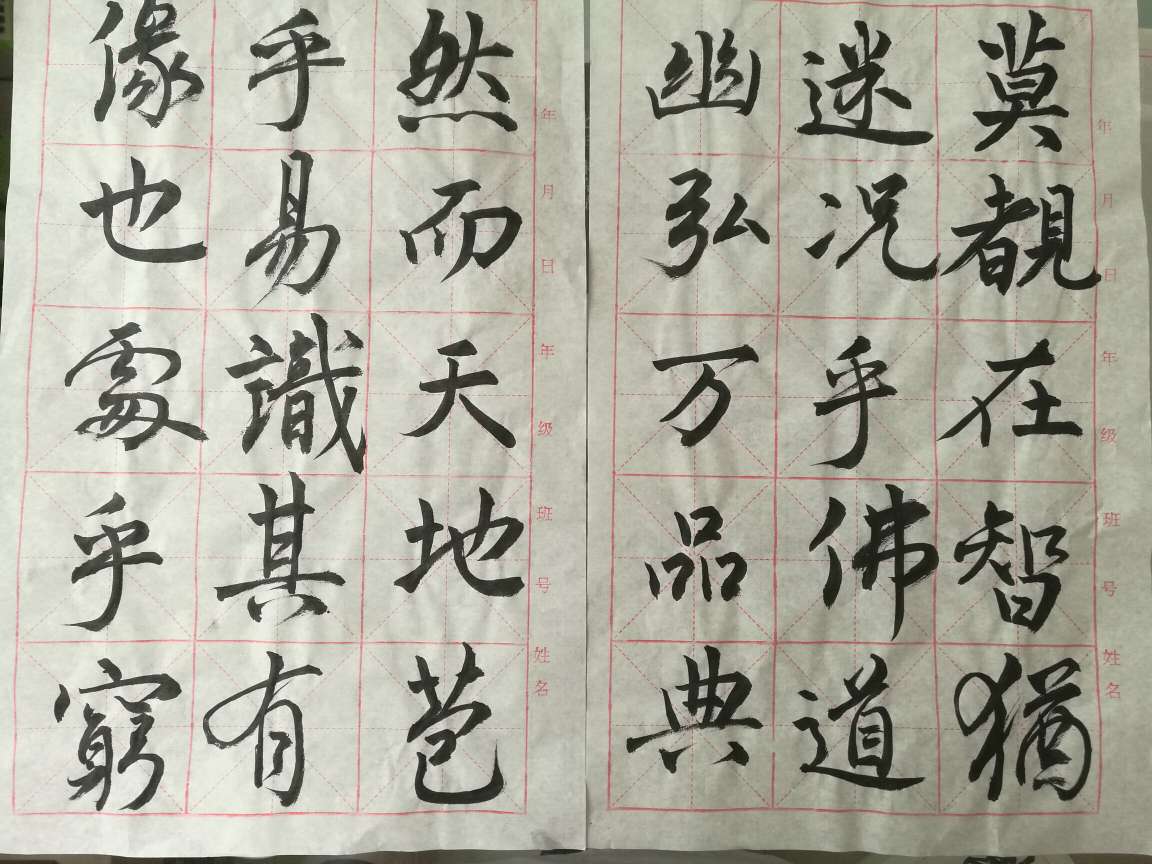 然而天地苞
乎易識其有
像也處乎窮
年月日年级班号姓名
莫覩在智猶
迷況乎佛道
幽弘万品典
年月日年级班号姓名